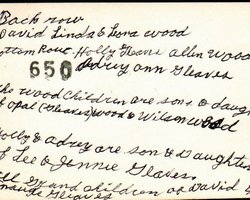 Back row
David Linda & Lora Wood
ottom Row. Holly Gleaves Allen Wood
650 Adry Ann Gleaves
the Wood Children are son & daugh
f Opal (Gleaves) Wood & Wilson Wood
Holly & Adry are son & Daughter
of Lee & Jennie Gleaves.
All Grand children of David &
Maude Gleaves